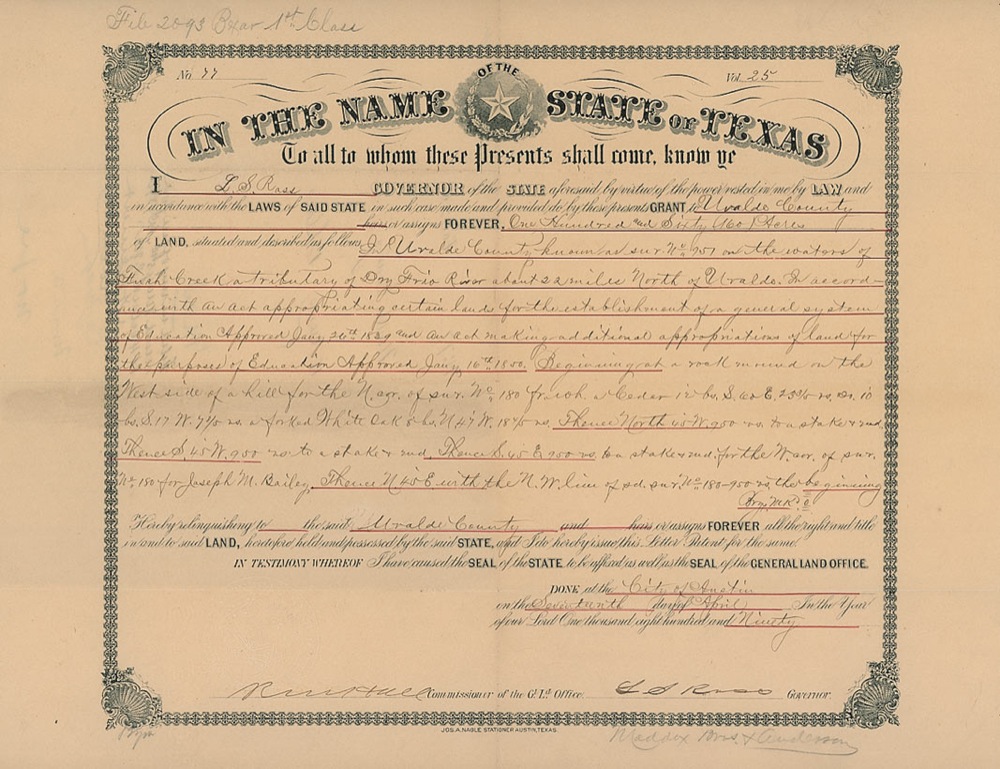 File 2093 Bexar 1st Class
No 77
Vol. 25
OF THE
IN THE NAME STATE OF TEXAS
To all to whom these Presents shall come, know ye
I L. S. Ross GOVERNOR of the STATE aforesaid by virtue of the power vested in me by LAW and
in accordance with the LAWS of SAID STATE in such case made and provided do by these presents GRANT to Uvalde County
heirs or assigns FOREVER, One Hundred and Sixty (160) Acres
of LAND, situated and described as follows, In Uvalde County known as sur. No 951 on the waters of
Creek a tributary of Dry Frio River about 22 miles North of Uvalde. In accord-
ance with an act appropriating certain lands for the establishment of a general system
of Education Approved Jany 26th 1839 and an act making additional appropriations of land for
the purposes of Education Approved Jany 16th 1850. Beginning at a rock mound on the
West side of a hill for the N. cor. of sur. No 180 fr. wh. a Cedar 12 bs. S. 60 E. 23 vs. Do. 10
bs. S. 17 W. vs. a forked White Oak 8 bs. N. 47 W. vs. Thence North 45 W. 950 vs. to a stake & md.
Thence S. 45 W. 950 vs. to a stake & md. Thence S. 45 E. 950 vs. to a stake & md. for the W. cor. of sur.
No 180 for Joseph M. Bailey. Thence N 45 E with the N. W. line of sd. sur. No 180 - 950 vs the beginning
Brg. mkd.
Hereby relinquishing to the said Uvalde County and heirs or assigns FOREVER all the right and title
in and to said LAND, heretofore held and possessed by the said STATE, and I do hereby issue this Letter Patent for the same.
IN TESTIMONY WHEREOF I have caused the SEAL of the STATE to be affixed as well as the SEAL of the GENERAL LAND OFFICE.
DONE at the City of Austin
on the Seventeenth day of April In the Year
of our Lord One thousand eight hundred and Ninety
R M Hall Commissioner of the Gl Ld Office. L S Ross Governor.
JOS. A. NAGLE STATIONER AUSTIN, TEXAS.
Maddox Bros & Anderson